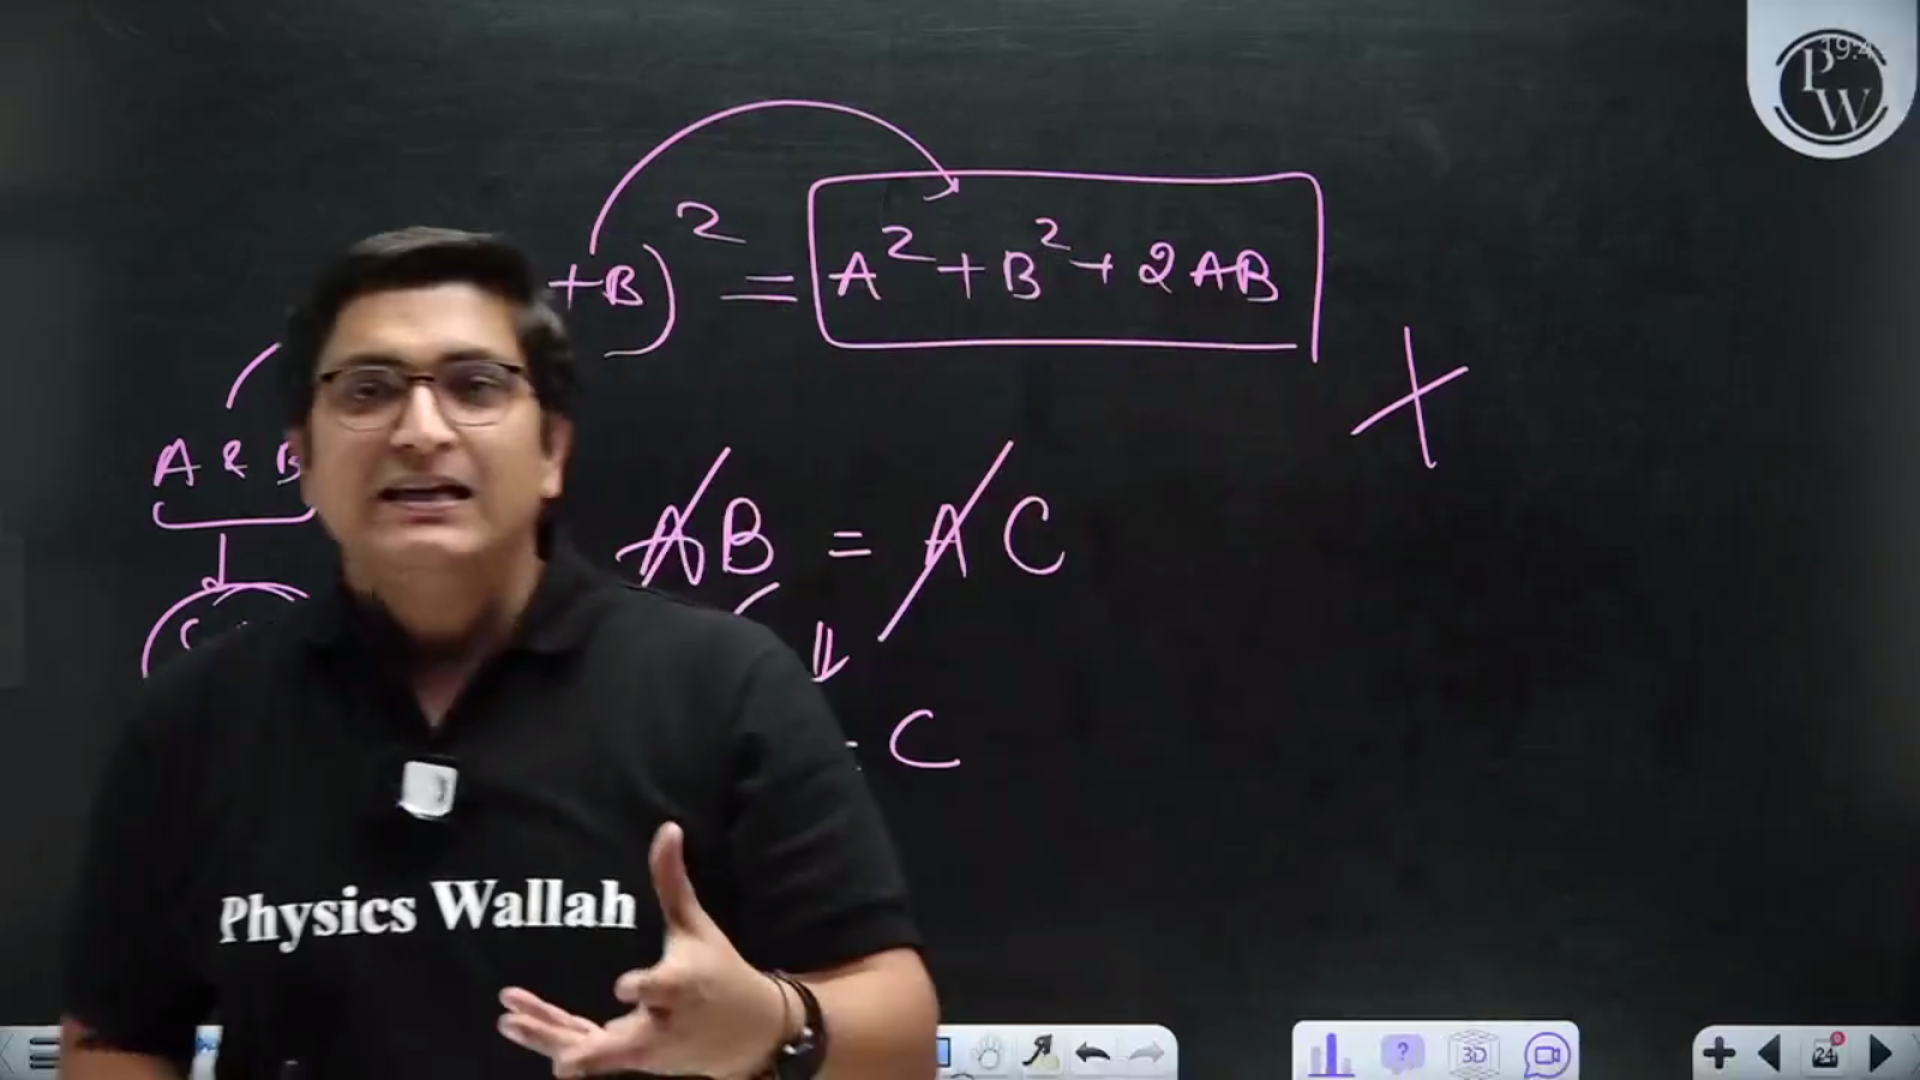 PW
+B)² = A² + B² + 2AB
A & B
AB = AC
⇓
C
Physics Wallah
3D
24